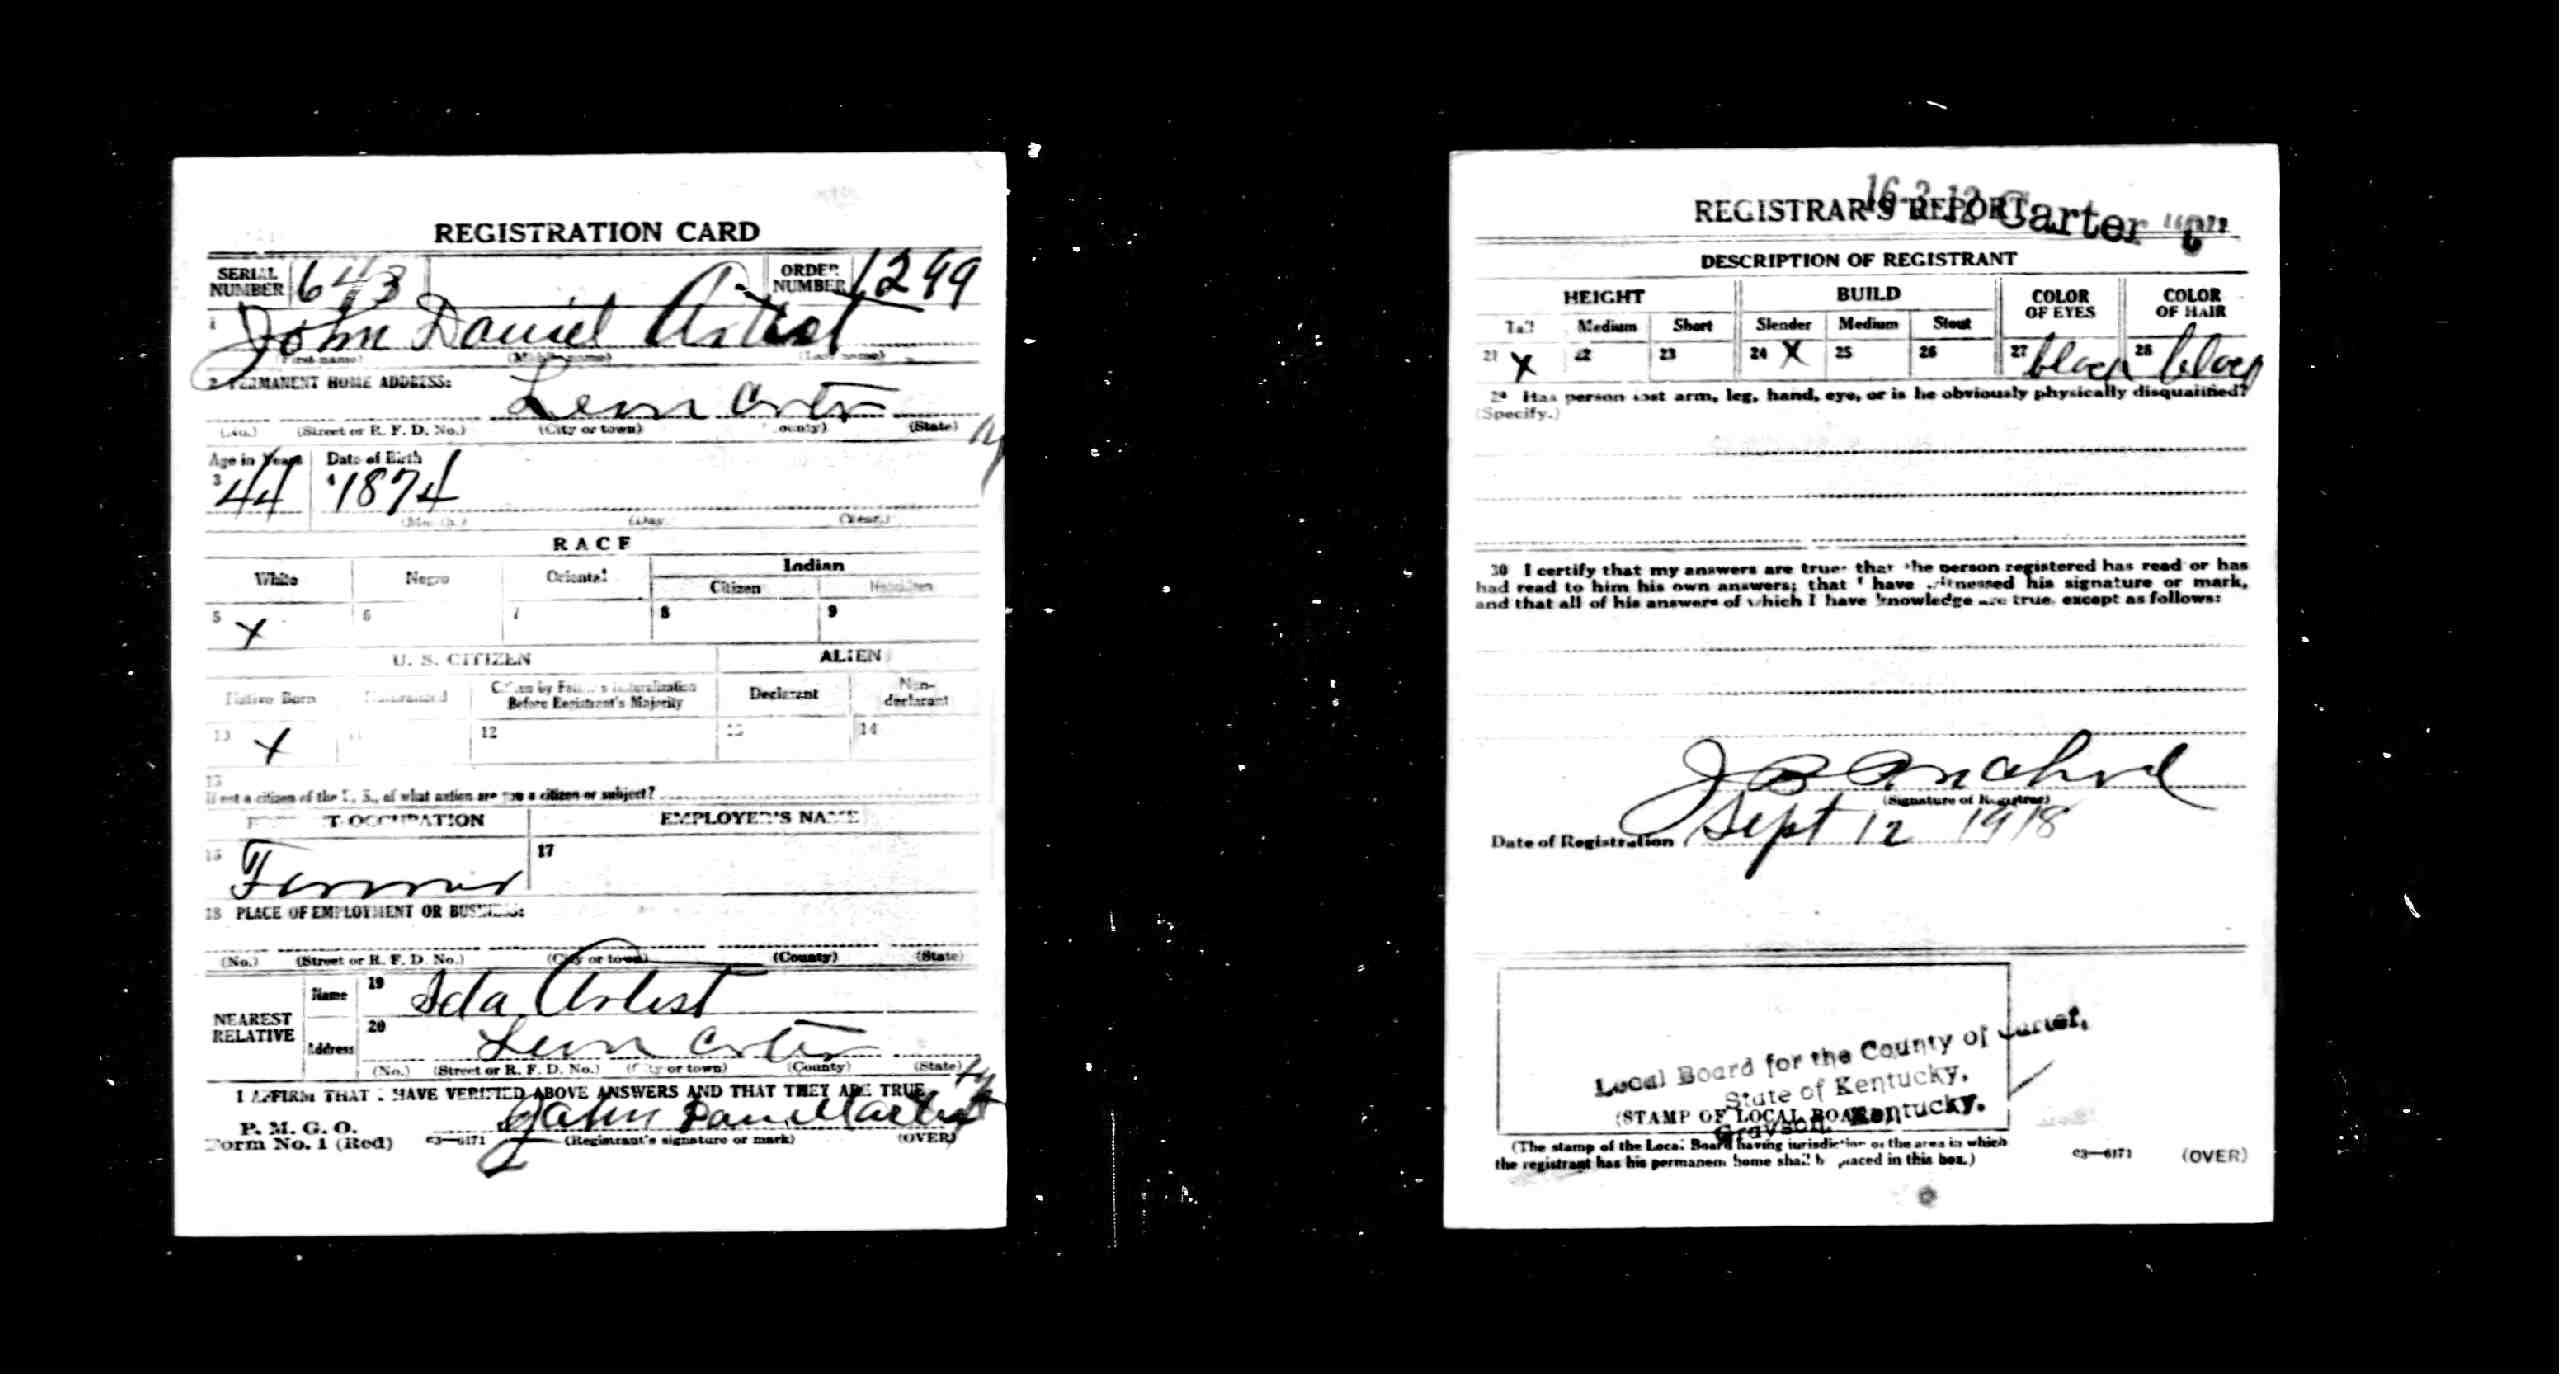 REGISTRATION CARD
SERIAL NUMBER 643 ORDER NUMBER 1299
1 John Daniel Artist
(First name) (Middle name) (Last name)
2 PERMANENT HOME ADDRESS:
Leon Carter Ky
(No.) (Street or R. F. D. No.) (City or town) (County) (State)
Age in Years Date of Birth
3 44 4 1874
(Month.) (Day.) (Year.)
RACE
White Negro Oriental Indian
Citizen Noncitizen
5 X 6 7 8 9
U. S. CITIZEN ALIEN
Native Born Naturalized Citizen by Father's Naturalization Before Registrant's Majority Declarant Non-declarant
10 X 11 12 13 14
15
If not a citizen of the U. S., of what nation are you a citizen or subject?
PRESENT OCCUPATION EMPLOYER'S NAME
16 Farmer 17
18 PLACE OF EMPLOYMENT OR BUSINESS:
(No.) (Street or R. F. D. No.) (City or town) (County) (State)
NEAREST RELATIVE Name 19 Ida Artist
Address 20 Leon Carter Ky
(No.) (Street or R. F. D. No.) (City or town) (County) (State)
I AFFIRM THAT I HAVE VERIFIED ABOVE ANSWERS AND THAT THEY ARE TRUE
P. M. G. O.
Form No. 1 (Red) c3—6171 John Daniel artist
(Registrant's signature or mark) (OVER)
REGISTRAR'S REPORT
16-3-12 Carter
DESCRIPTION OF REGISTRANT
HEIGHT BUILD COLOR OF EYES COLOR OF HAIR
Tall Medium Short Slender Medium Stout
21 X 22 23 24 X 25 26 27 black 28 black
29 Has person lost arm, leg, hand, eye, or is he obviously physically disqualified?
(Specify.)
30 I certify that my answers are true; that the person registered has read or has
had read to him his own answers; that I have witnessed his signature or mark,
and that all of his answers of which I have knowledge are true, except as follows:
J B
(Signature of Registrar)
Date of Registration Sept 12 1918
Local Board for the County of Carter,
State of Kentucky,
Grayson, Kentucky.
(STAMP OF LOCAL BOARD)
(The stamp of the Local Board having jurisdiction of the area in which
the registrant has his permanent home shall be placed in this box.)
c3—6171 (OVER)